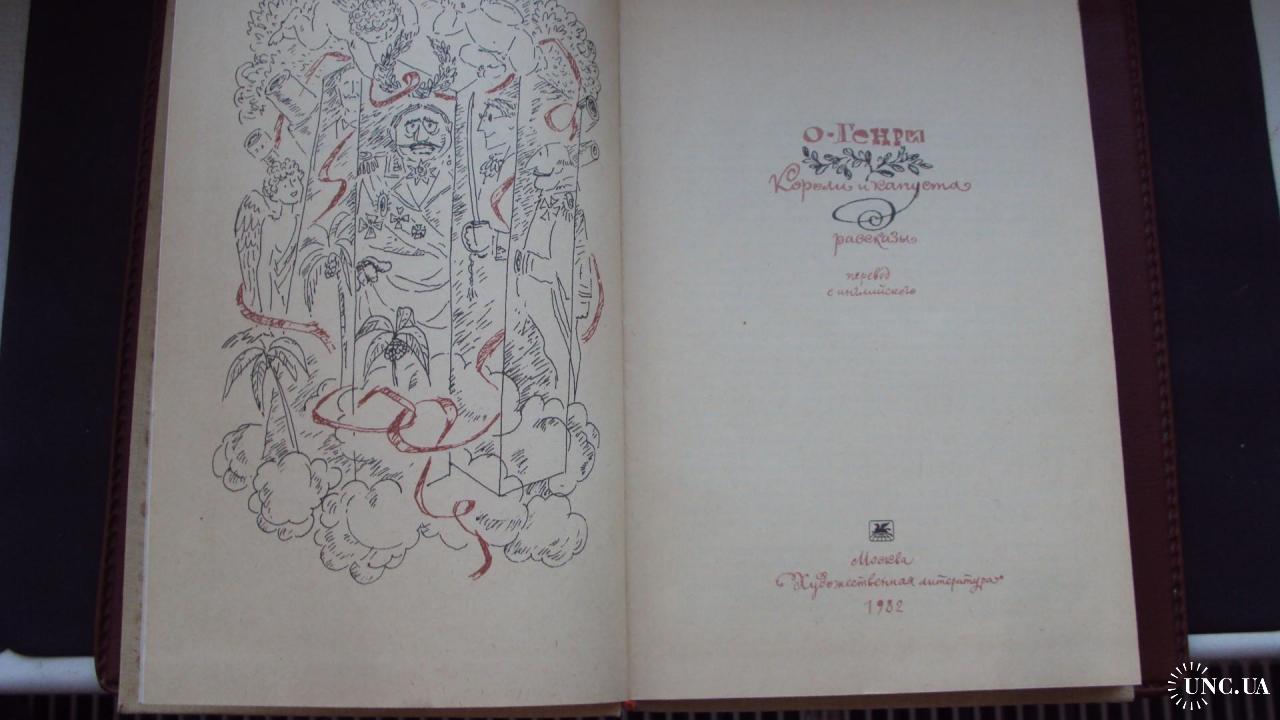 О·Генри
Короли и капуста
рассказы
перевод
с английского
Москва
"Художественная литература"
1982
UNC.UA